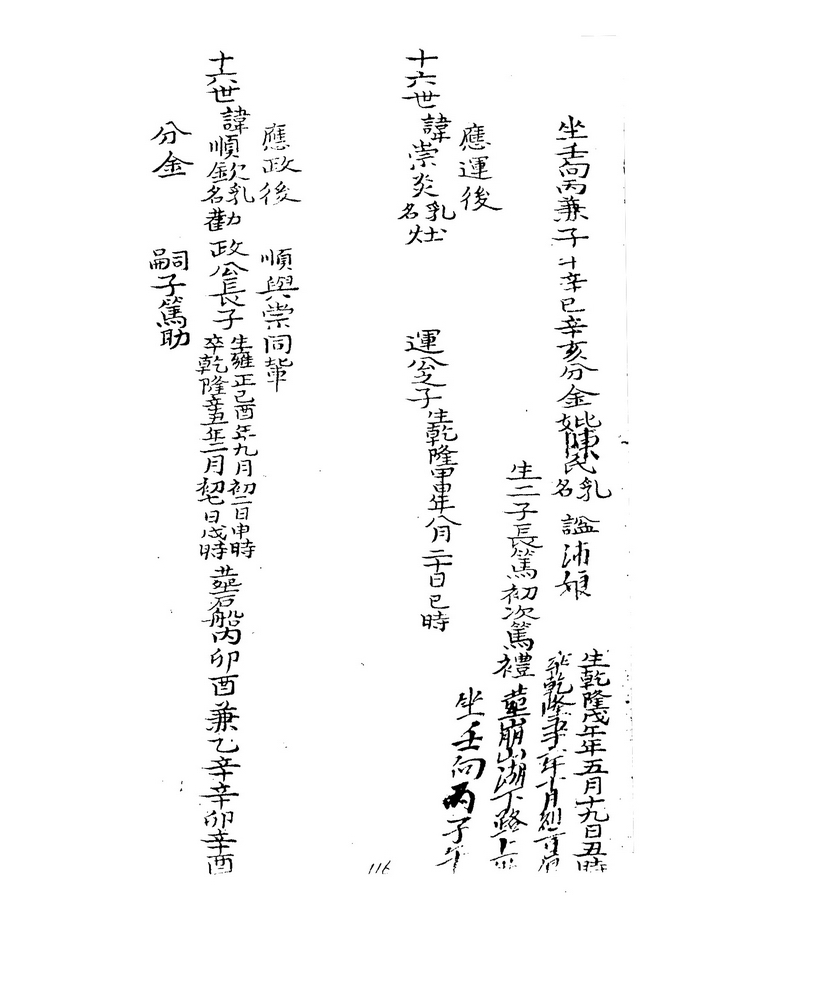 坐壬向丙兼子午辛巳辛亥分金妣陳氏乳名 諡沛娘
生乾隆戊午年五月十九日丑時
卒乾隆 年十月初 日
生二子長篤初次篤禮 葬崩山湖下路上
坐壬向丙子午
應運後
十六世諱崇炎乳名灶 運公之子生乾隆甲申年八月二十日巳時
應政後 順與崇同輩
十六世諱順欽乳名勸 政公長子
生雍正己酉年九月初二日申時
卒乾隆辛丑年二月初七日戌時
葬石船內卯酉兼乙辛辛卯辛酉
分金 嗣子篤助
116